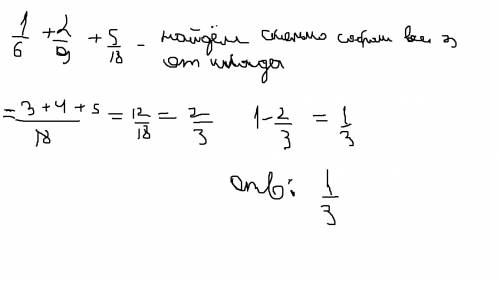 1/6 + 2/9 + 5/18 - найдём сколько собрали все 3
от клада
= 3 + 4 + 5 / 18 = 12/18 = 2/3 1 - 2/3 = 1/3
Отв: 1/3